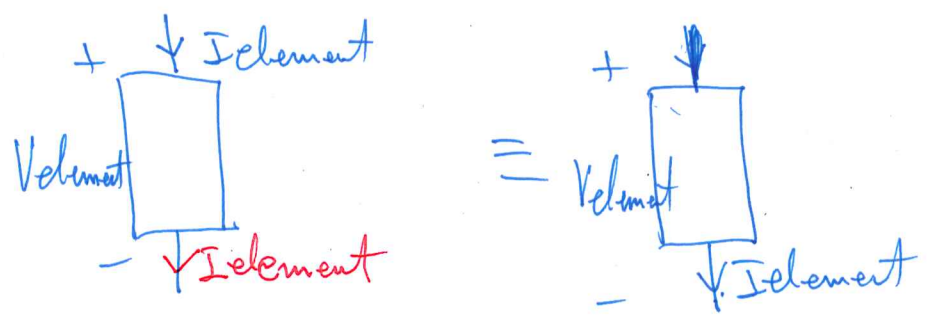 + Ielement
+
Velement
≡
Velement
- Ielement
- Ielement